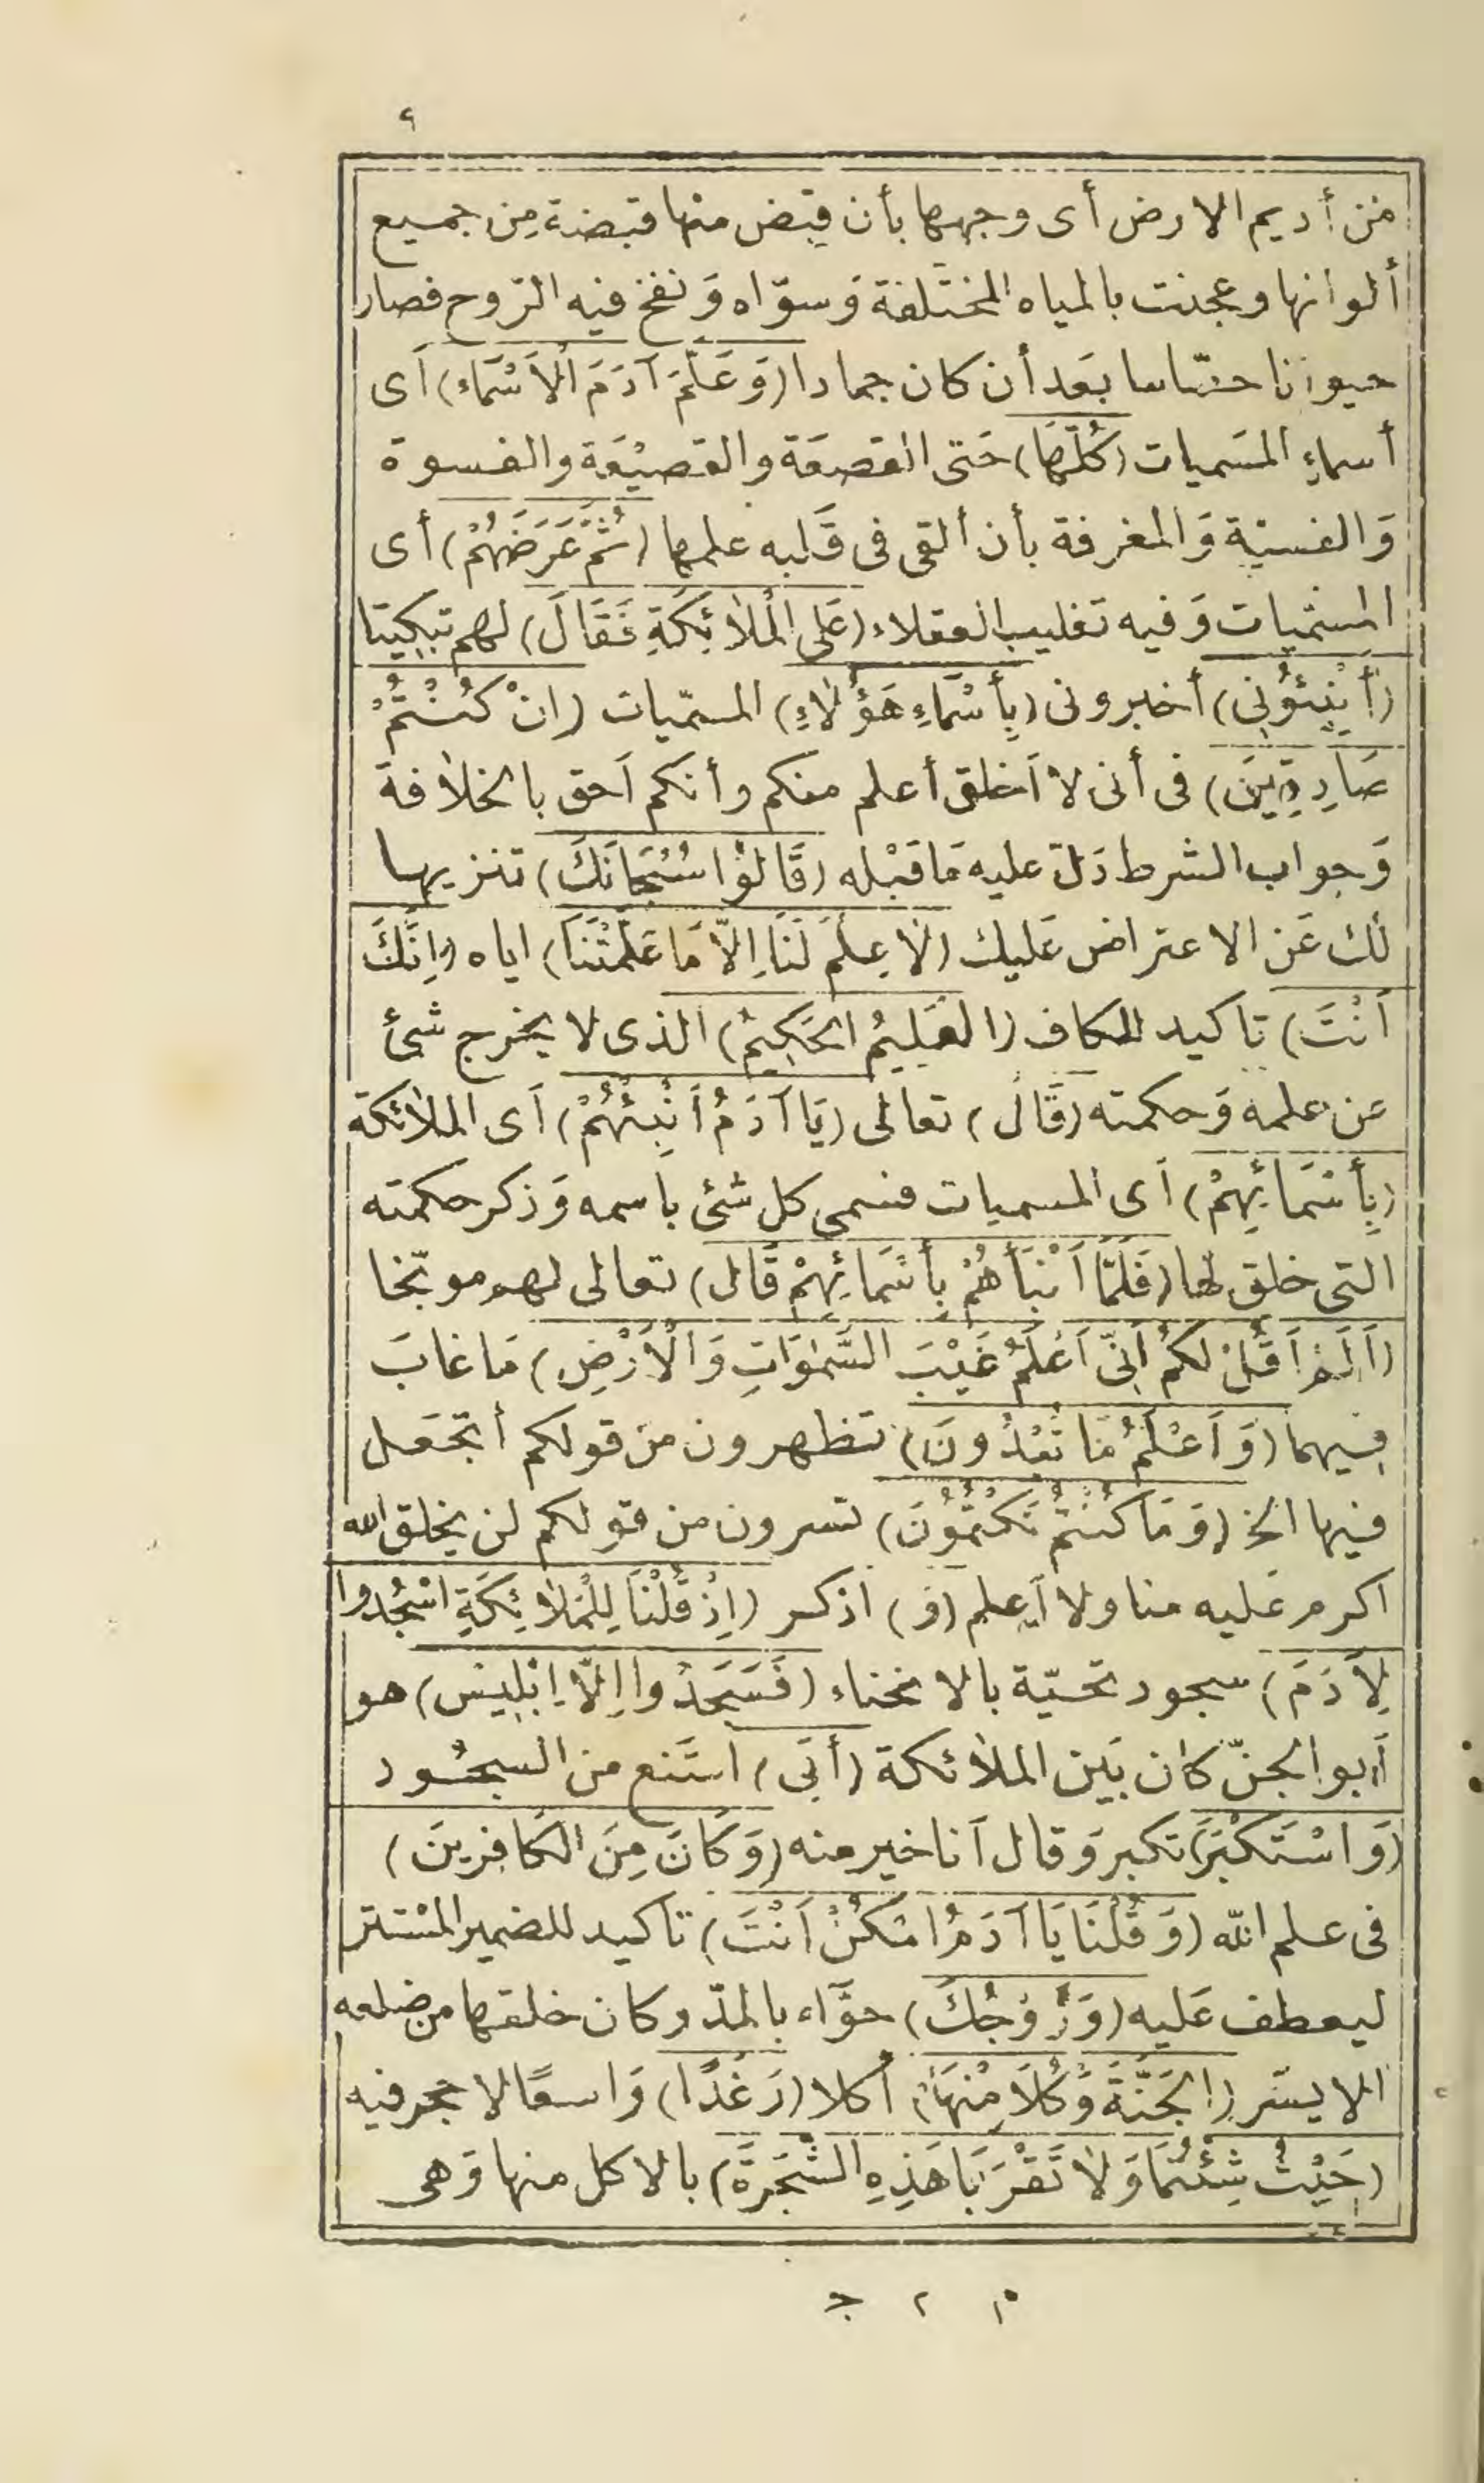 ٩
من أديم الارض أى وجهها بأن قبض منها قبضة من جميع
ألوانها وعجنت بالمياه المختلفة وَسوّاه وَنفخ فيه الرّوح فصار
حيوانا حسّاسا بعَد أن كان جمادا (وَعَلَّمَ آدَمَ الْأَسْمَاءَ) أَى
أسماءِ المسَميات (كُلَّهَا) حَتى القصعَة والقصيْعَة والفسوة
وَالفسيّة وَالمغرفة بأن ألقى فى قَلبه علمها (ثُمَّ عَرَضَهُمْ) أى
المسّميات وَفيه تغليب العقلاء (عَلَى الْمَلَائِكَةِ فَقَالَ) لهم تبكيتا
(أَنْبِئُونِى) أخبرونى (بِأَسْمَاءِ هَؤُلَاءِ) المسمّيات (اِنْ كُنْتُمْ
صَادِقِينَ) فى أنى لا أَخلق أعلم منكم وأنكم أَحق بالخلافة
وَجواب الشرط دَلّ عليه مَا قَبْله (قَالُوْا سُبْحَانَكَ) تنزيها
لك عَن الاعتراض عَليك (لَا عِلْمَ لَنَا اِلَّا مَا عَلَّمْتَنَا) اياه (اِنَّكَ
أَنْتَ) تاكيد للكاف (الْعَلِيْمُ الْحَكِيْمُ) الذى لا يخرج شئ
عن علمه وَحكمته (قَالَ) تعالى (يَا آدَمُ أَنْبِئْهُمْ) أَى الملائكة
(بِأَسْمَائِهِمْ) أَى المسميات فسمى كل شئ باسمه وَذكر حكمته
التى خلق لها (فَلَمَّا أَنْبَأَهُمْ بِأَسْمَائِهِمْ قَالَ) تعالى لهم موبّخا
(أَلَمْ أَقُلْ لَكُمْ اِنِّى أَعْلَمُ غَيْبَ السَّمٰوَاتِ وَالْأَرْضِ) مَا غابَ
فيهما (وَأَعْلَمُ مَا تُبْدُونَ) تظهرون من قولكم أتجعَل
فيها الخ (وَمَا كُنْتُمْ تَكْتُمُوْنَ) تسرون من قولكم لن يخلق الله
اكرم عَليه منا ولا أَعلم (وَ) اذكر (اِذْ قُلْنَا لِلْمَلَائِكَةِ اسْجُدُوا
لِآدَمَ) سجود تحيّة بالانحناء (فَسَجَدُوا اِلَّا اِبْلِيْسَ) هو
أَبو الجنّ كان بَين الملائكة (أَبَى) امتَنع من السجُود
(وَاسْتَكْبَرَ) تكبر وَقال أَنا خير منه (وَكَانَ مِنَ الْكَافِرِينَ)
فى علم اللّه (وَقُلْنَا يَا آدَمُ اسْكُنْ أَنْتَ) تاكيد للضمير المسْتتر
ليعطف عَليه (وَزَوْجُكَ) حوَّاء بالمدّ وكان خلقها من ضلعه
الايسَر (الْجَنَّةَ وَكُلَا مِنْهَا) أكلا (رَغَدًا) وَاسعًا لا حجر فيه
(حَيْثُ شِئْتُمَا وَلَا تَقْرَبَا هَذِهِ الشَّجَرَةَ) بالاكل منها وَهى
م ٢ ج